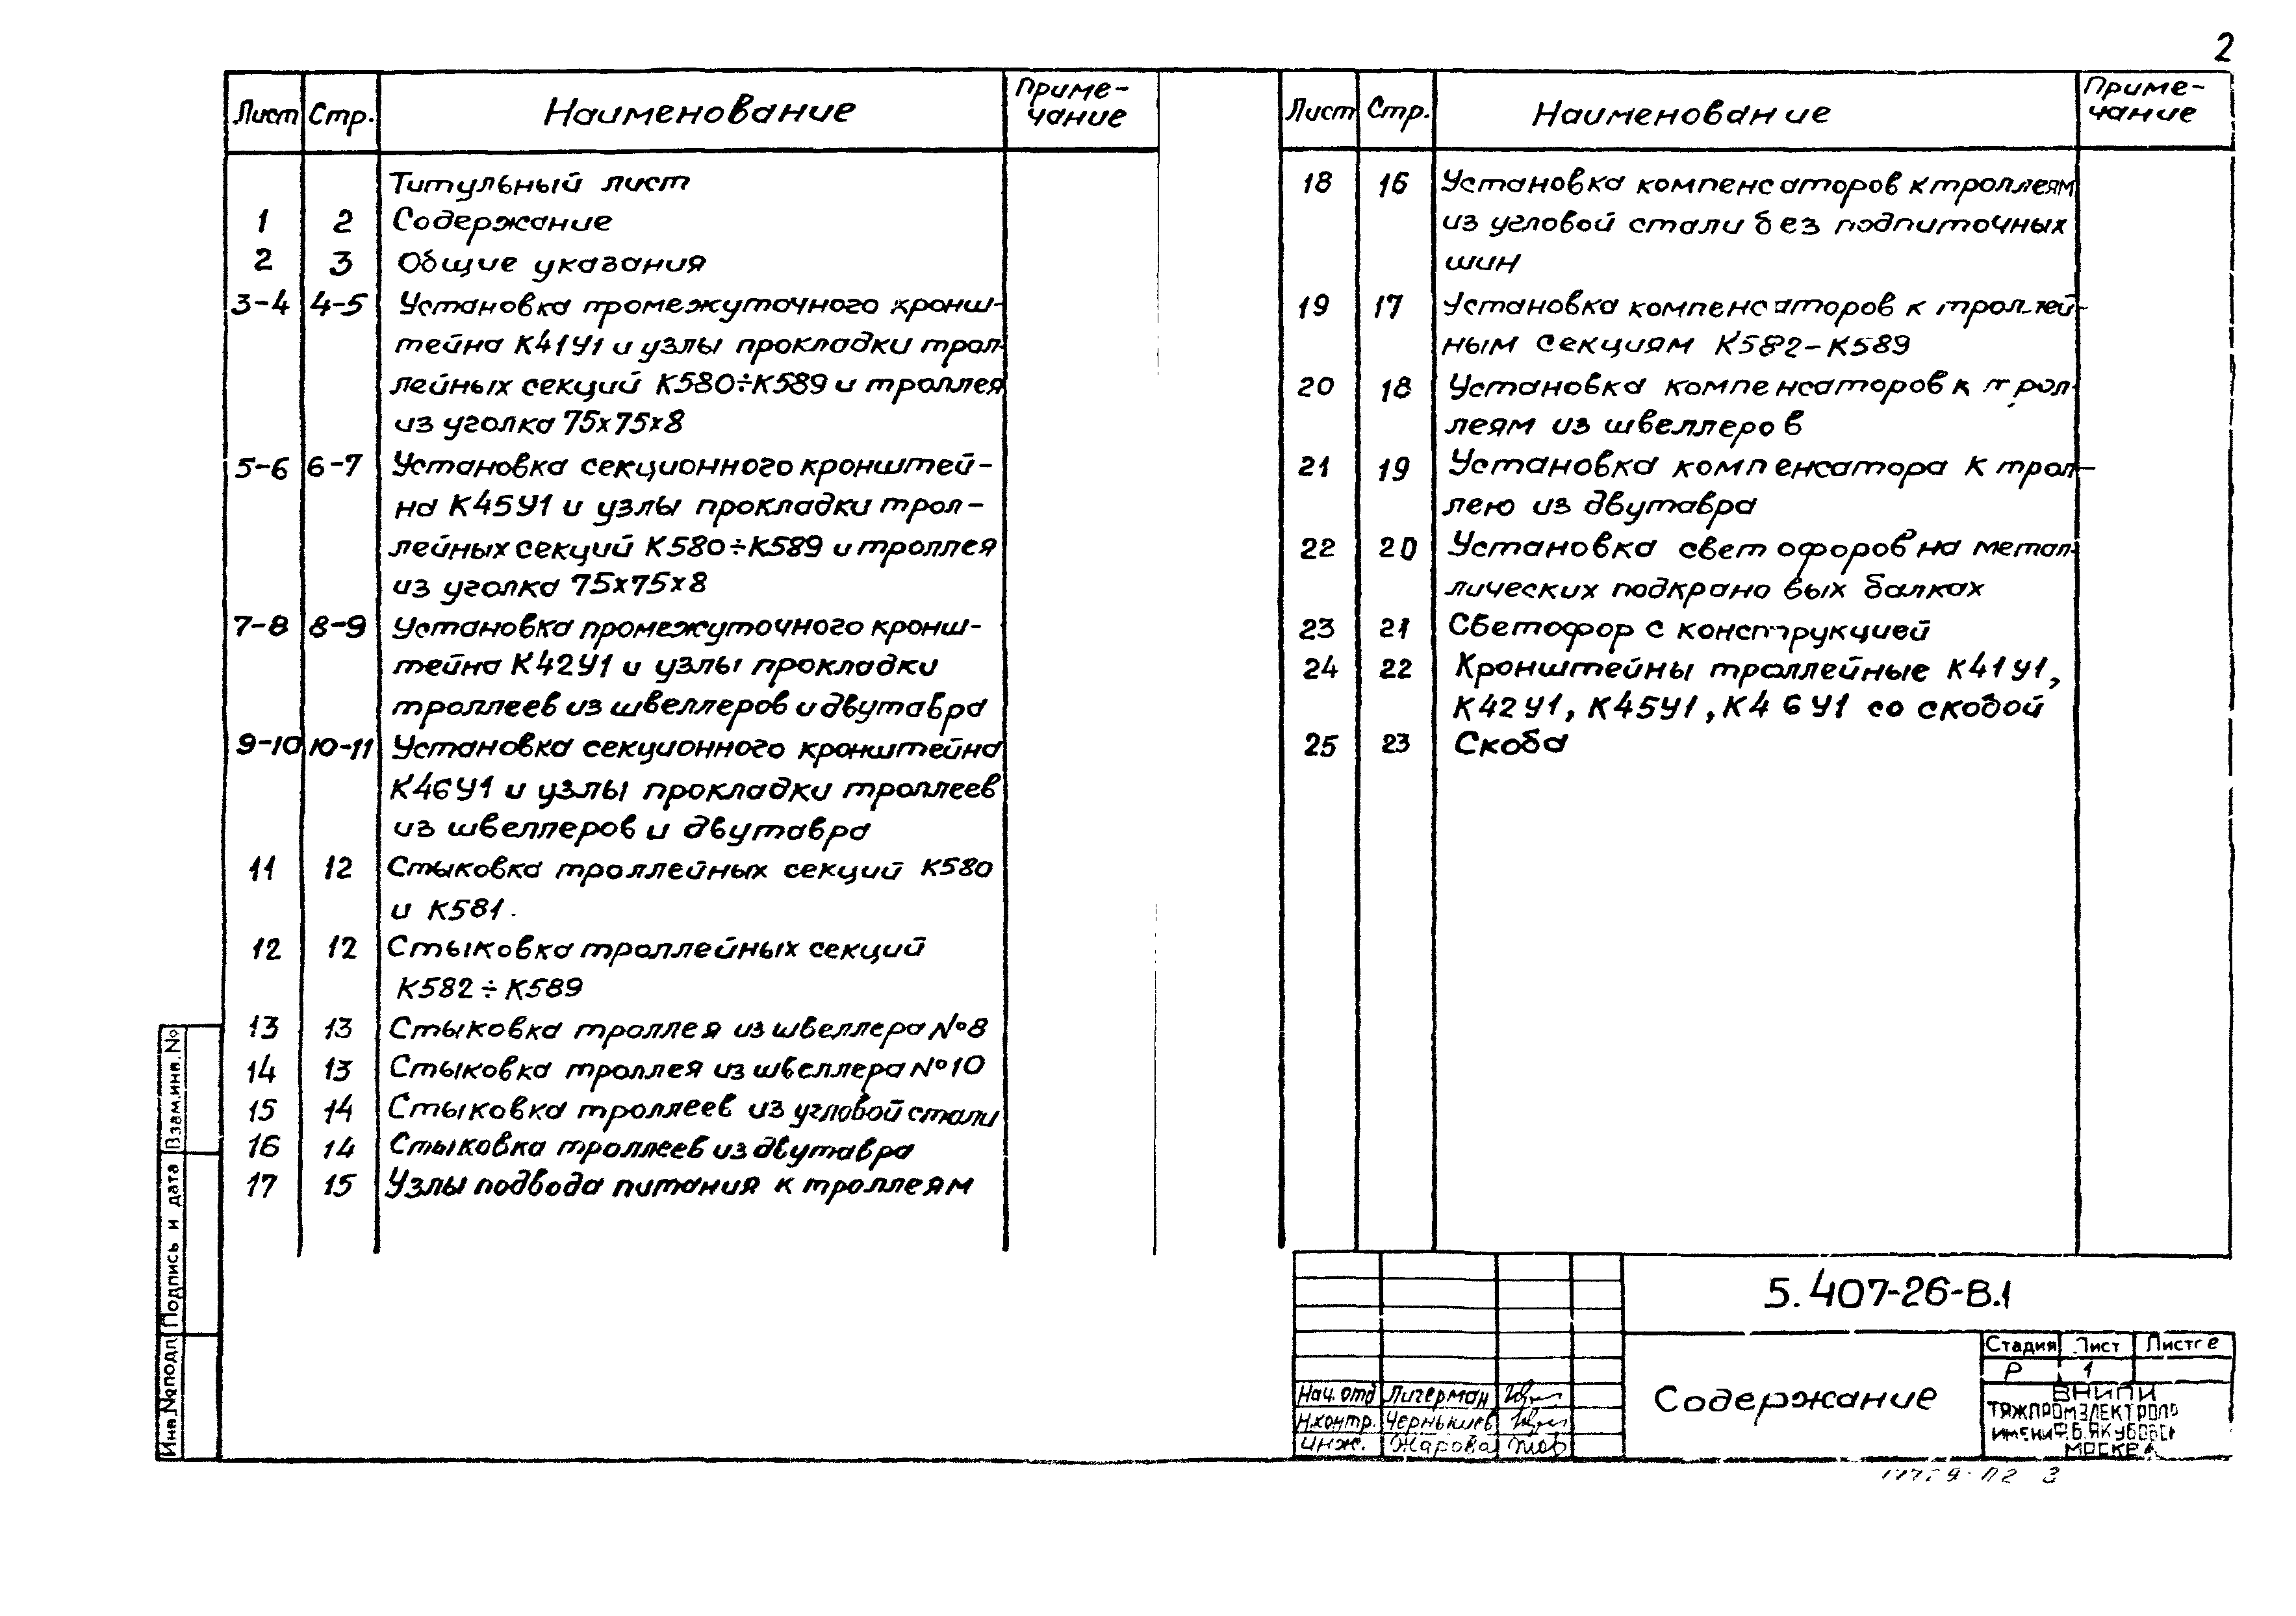 2
Лист Стр. Наименование Приме-
чание
Титульный лист
1 2 Содержание
2 3 Общие указания
3-4 4-5 Установка промежуточного кронш-
тейна К41У1 и узлы прокладки трол-
лейных секций К580÷К589 и троллея
из уголка 75х75х8
5-6 6-7 Установка секционного кронштей-
на К45У1 и узлы прокладки трол-
лейных секций К580÷К589 и троллея
из уголка 75х75х8
7-8 8-9 Установка промежуточного кронш-
тейна К42У1 и узлы прокладки
троллеев из швеллеров и двутавра
9-10 10-11 Установка секционного кронштейна
К46У1 и узлы прокладки троллеев
из швеллеров и двутавра
11 12 Стыковка троллейных секций К580
и К581.
12 12 Стыковка троллейных секций
К582÷К589
13 13 Стыковка троллея из швеллера №8
14 13 Стыковка троллея из швеллера №10
15 14 Стыковка троллеев из угловой стали
16 14 Стыковка троллеев из двутавра
17 15 Узлы подвода питания к троллеям
Лист Стр. Наименование Приме-
чание
18 16 Установка компенсаторов к троллеям
из угловой стали без подпиточных
шин
19 17 Установка компенсаторов к троллей-
ным секциям К582-К589
20 18 Установка компенсаторов к трол-
леям из швеллеров
21 19 Установка компенсатора к трол-
лею из двутавра
22 20 Установка светофоров на метал-
лических подкрановых балках
23 21 Светофор с конструкцией
24 22 Кронштейны троллейные К41У1,
К42У1, К45У1, К46У1 со скобой
25 23 Скоба
Взам.инв.№
Подпись и дата
Инв.№подл
5.407-26-В.1
Содержание
Стадия Лист
Р 1
ВНИПИ
ТЯЖПРОМЭЛЕКТРОПР
ИМЕНИ Ф.Б.ЯКУБОВСК
МОСКВА
Нач.отд Лигерман
Н.контр. Чернышев
инж. Жарова